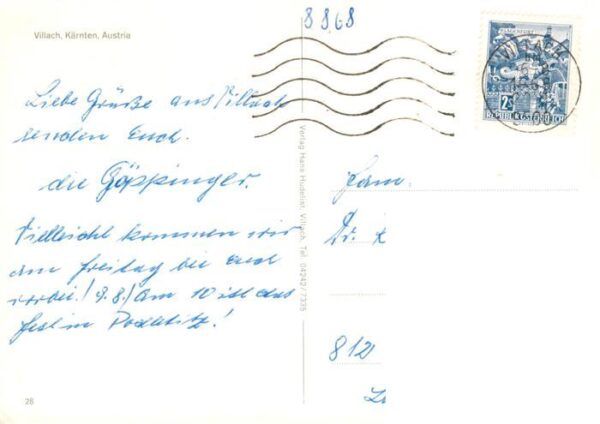 8 8 68
Villach, Kärnten, Austria
KLAGENFURT
VILLACH
2 S
REPUBLIK ÖSTERREICH
Liebe Grüße aus Villach
senden Euch
die Göppinger.
Vielleicht kommen wir
am Freitag bei Euch
vorbei! (9.8.) Am 10 ist das
Fest in
Verlag Hans Huderist, Villach, Tel. 04242/7335
Fam.
Dr.
812
28